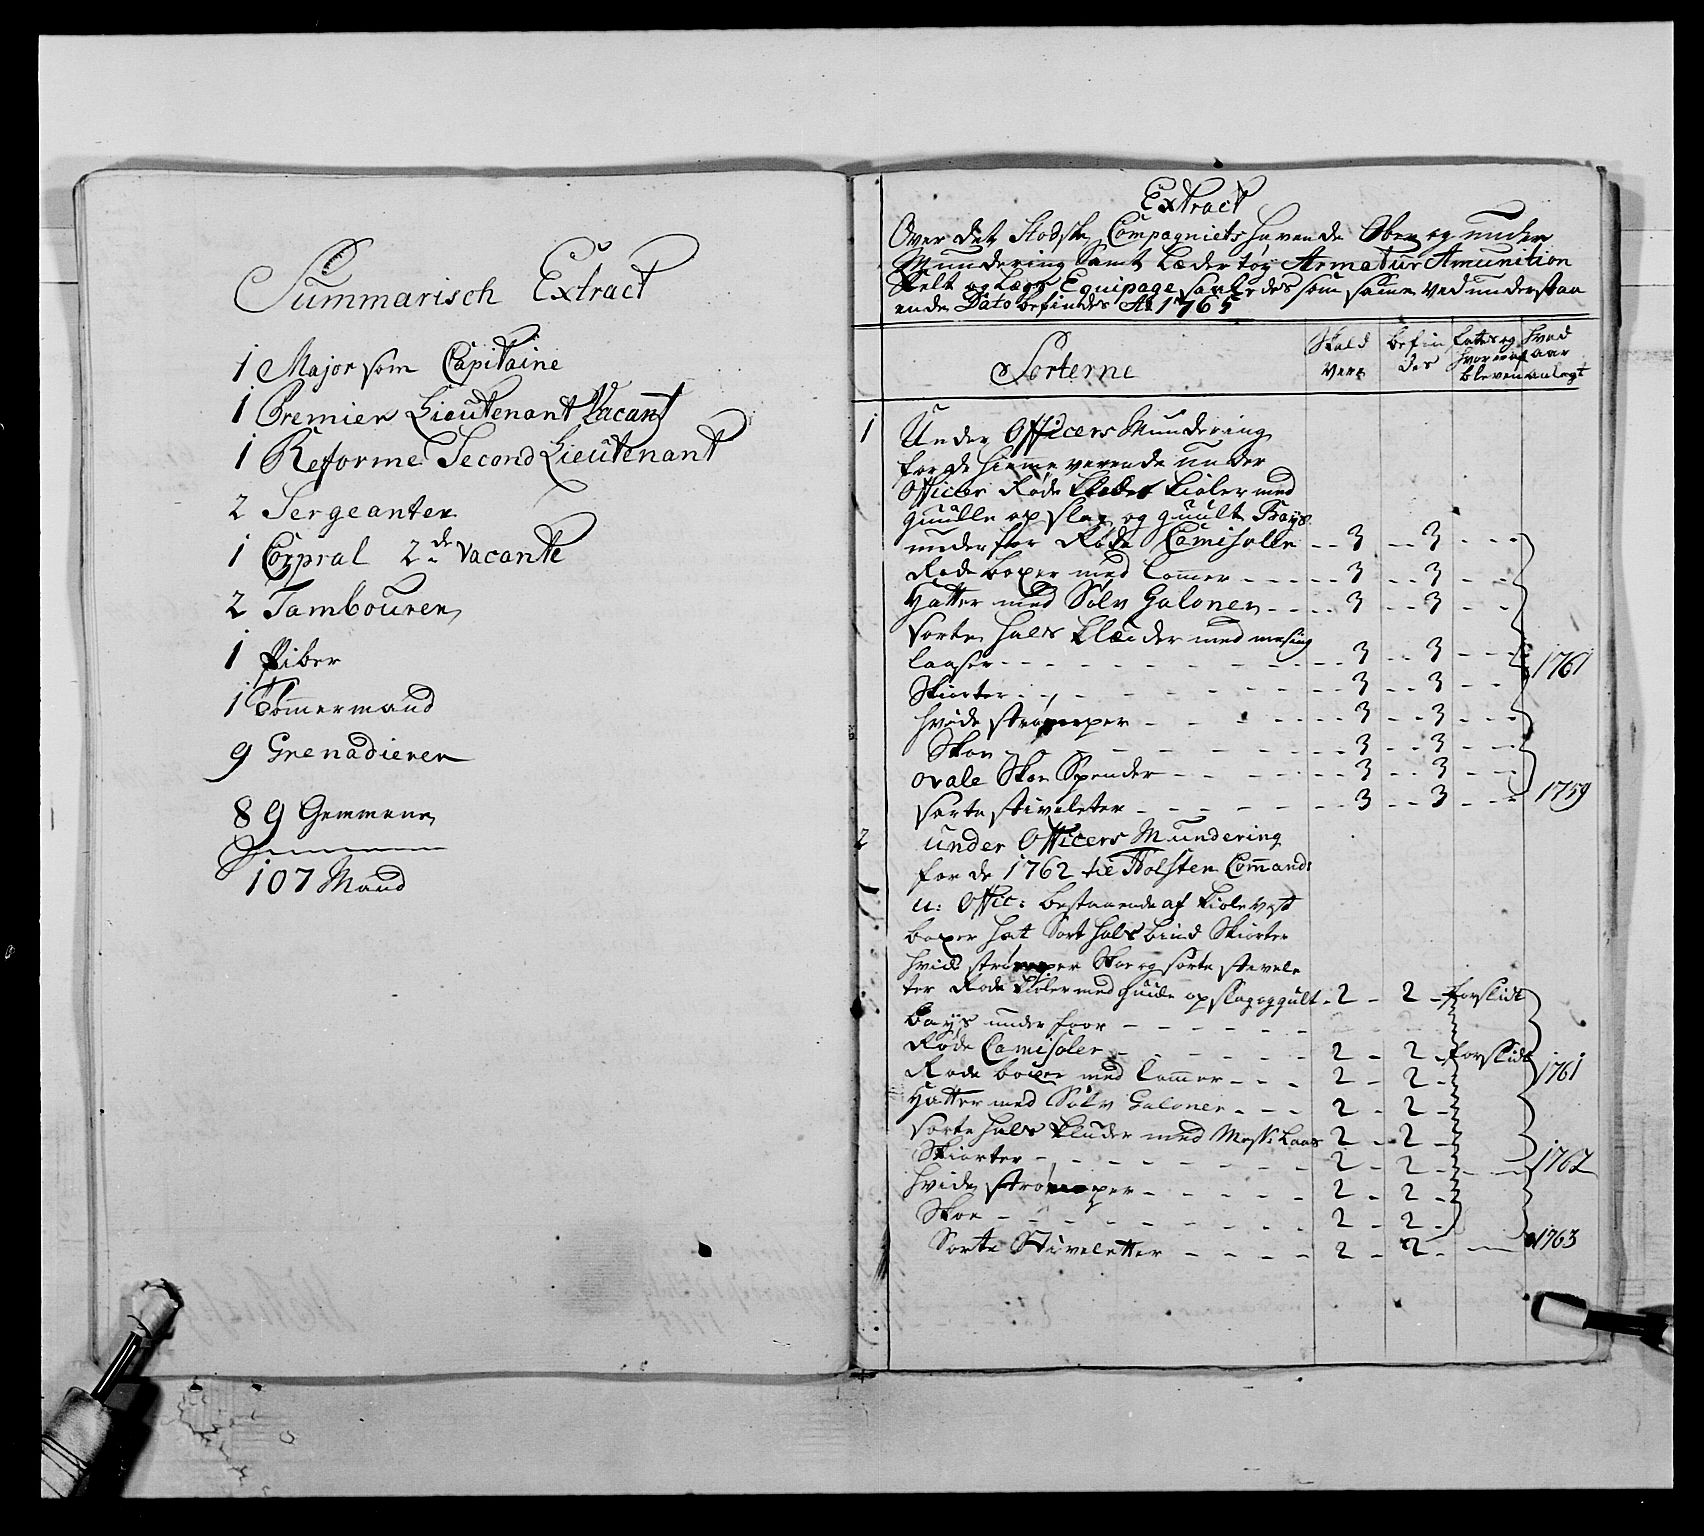 Summarisch Extract
1 Major som Capitaine
1 Premier Lieutenant Vacant
1 Reforme Second Lieutenant
2 Sergeanter
1 Corpral 2de Vacante
2 Tambourer
1 Piber
1 Tømmermand
9 Grenadierer
89 Gemmene
107 Mand
Extract
Over det Compagniets havende Over og under
Mundering Samt Lædertøy Armatur Amunition
Felt og Equipage saaledes som samme ved understaa
ende Dato befindes Ao 1765
Sorterne
Skuld
være
befin
des
hvor af
bleven
hvad
aar
anlagt
1 Under Officers Mundering
for de hiemme verende under
Officer Røde Klædes Kioler med
guule opslag og guult Bays
underfoer Røde Camisoller - - 3 - - 3 - - -
Røde boxer med lommer - - - - 3 - - 3 - -
Hatter med Sølv Galoner - - - - 3 - - 3 - -
Sorte hals klæder med mesing
laaser - - - - 3 - - 3 - - - 1761
Skiorter - - - - 3 - - 3 - -
hvide strømper - - - - 3 - - 3 - -
Skoe - - - - 3 - - 3 - -
ovale Skoe Spender - - - - 3 - - 3 - - -
sorte stiveletter - - - - 3 - - 3 - - 1759
2 under Officers Mundering
for de 1762 til Holsten Command:
u: Offic: bestaaende af Kiole vest
boxer hat Sort halsbind Skiorter
hvide strømper Skoe og sorte stivele
ter Røde Kioler med Guule opslag og gult - 2 - 2 - forslidt
Bays under foer - - - -
Røde Camisoler - - - 2 - 2 - forslidt
Røde boxer med lommer - - - 2 - 2 - 1761
Hatter med Sølv Galoner - - - 2 - 2 -
sorte hals kluder med Mess: Laas 2 - 2 -
Skiorter - - - - 2 - 2 - - - 1762
hvide strømper - - - - 2 - 2 -
Skoe - - - - 2 - 2 -
Sorte Stiveletter - - - - 2 - 2 - - 1763